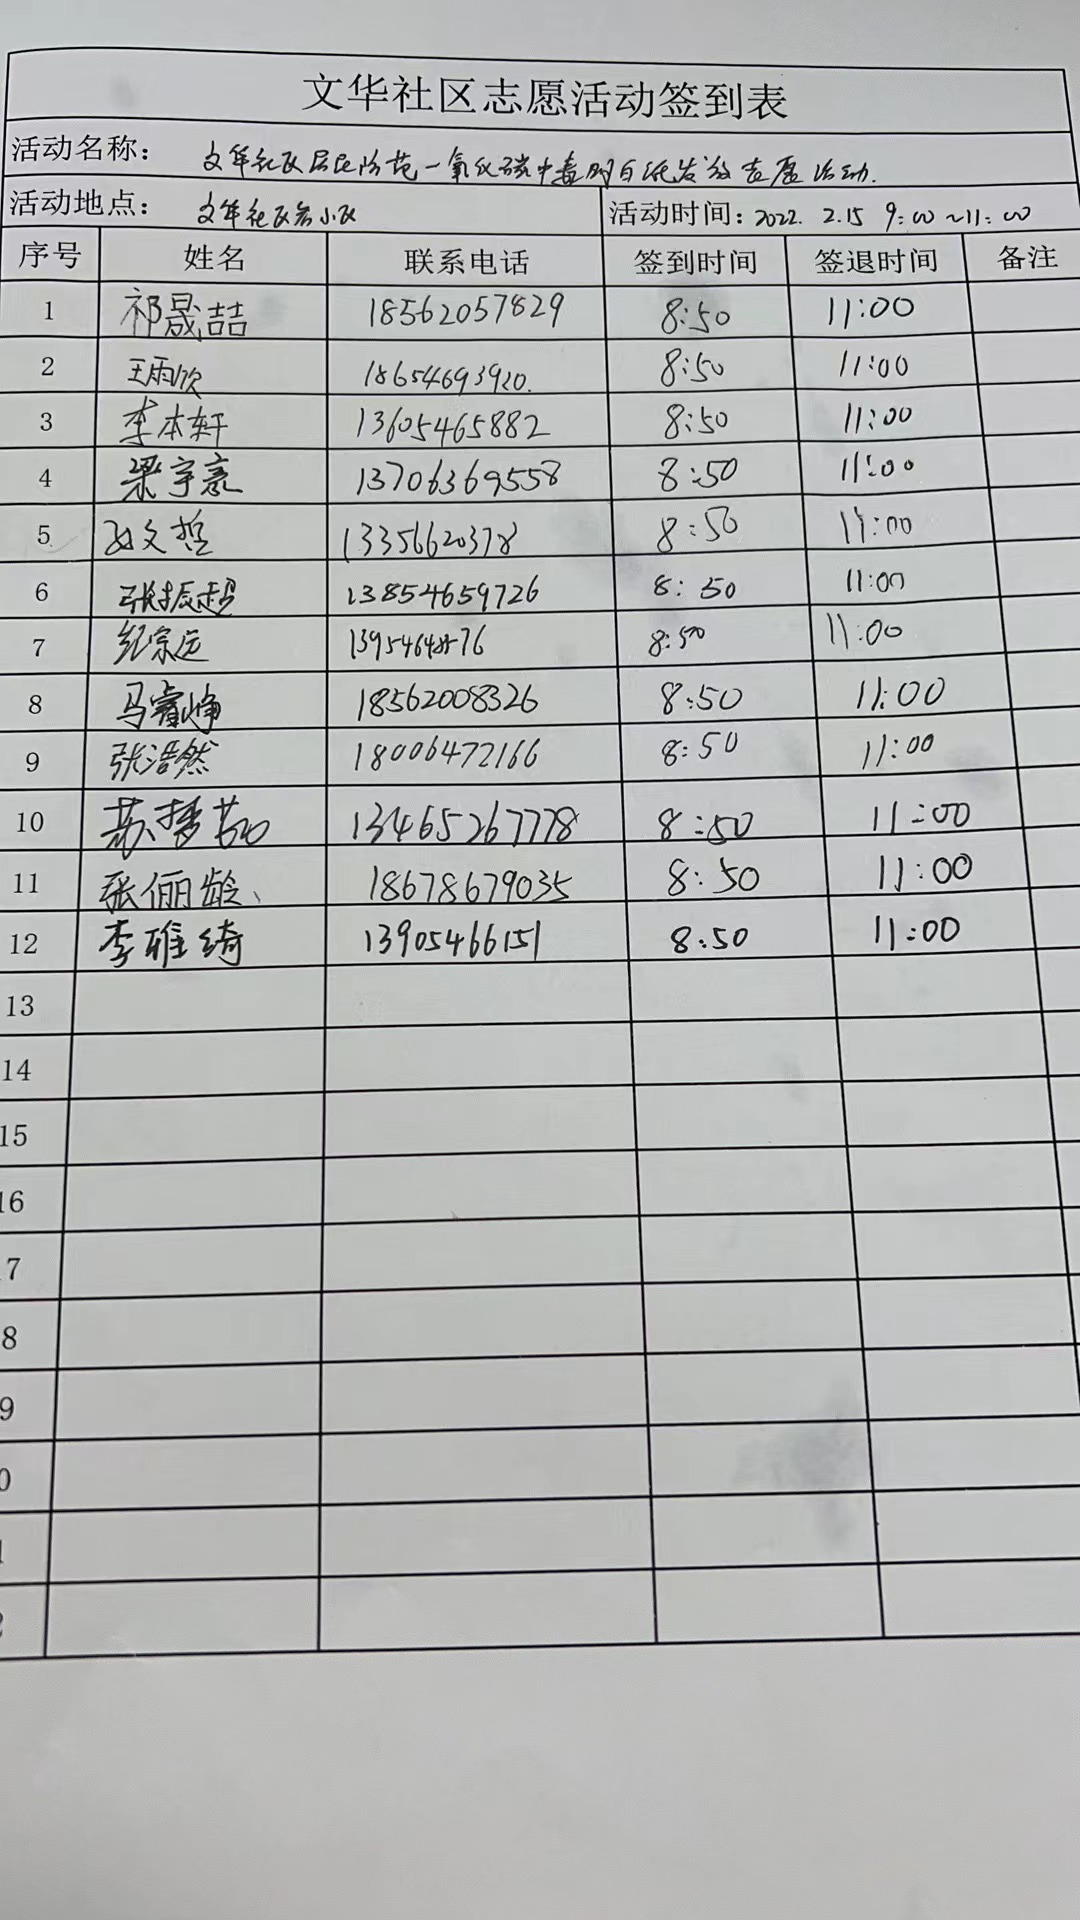 文华社区志愿活动签到表
活动名称： 文华社区居民防范一氧化碳中毒明白纸发放志愿活动.
活动地点： 文华社区各小区 活动时间：2022. 2.15 9:00~11:00
序号 姓名 联系电话 签到时间 签退时间 备注
1 祁晟喆 18562057829 8:50 11:00
2 王雨欣 18654693920. 8:50 11:00
3 李本轩 13605465882 8:50 11:00
4 梁宇豪 13706369558 8:50 11:00
5 文哲 13356620378 8:50 11:00
6 张振超 13854659726 8:50 11:00
7 纪宗运 8:50 11:00
8 马睿峥 18562008326 8:50 11:00
9 张浩然 18006472166 8:50 11:00
10 苏梦茹 13465267778 8:50 11:00
11 张俪龄、 18678679035 8:50 11:00
12 李雅绮 13905466151 8:50 11:00
13
14
15
16
7
8
9
0
1
2